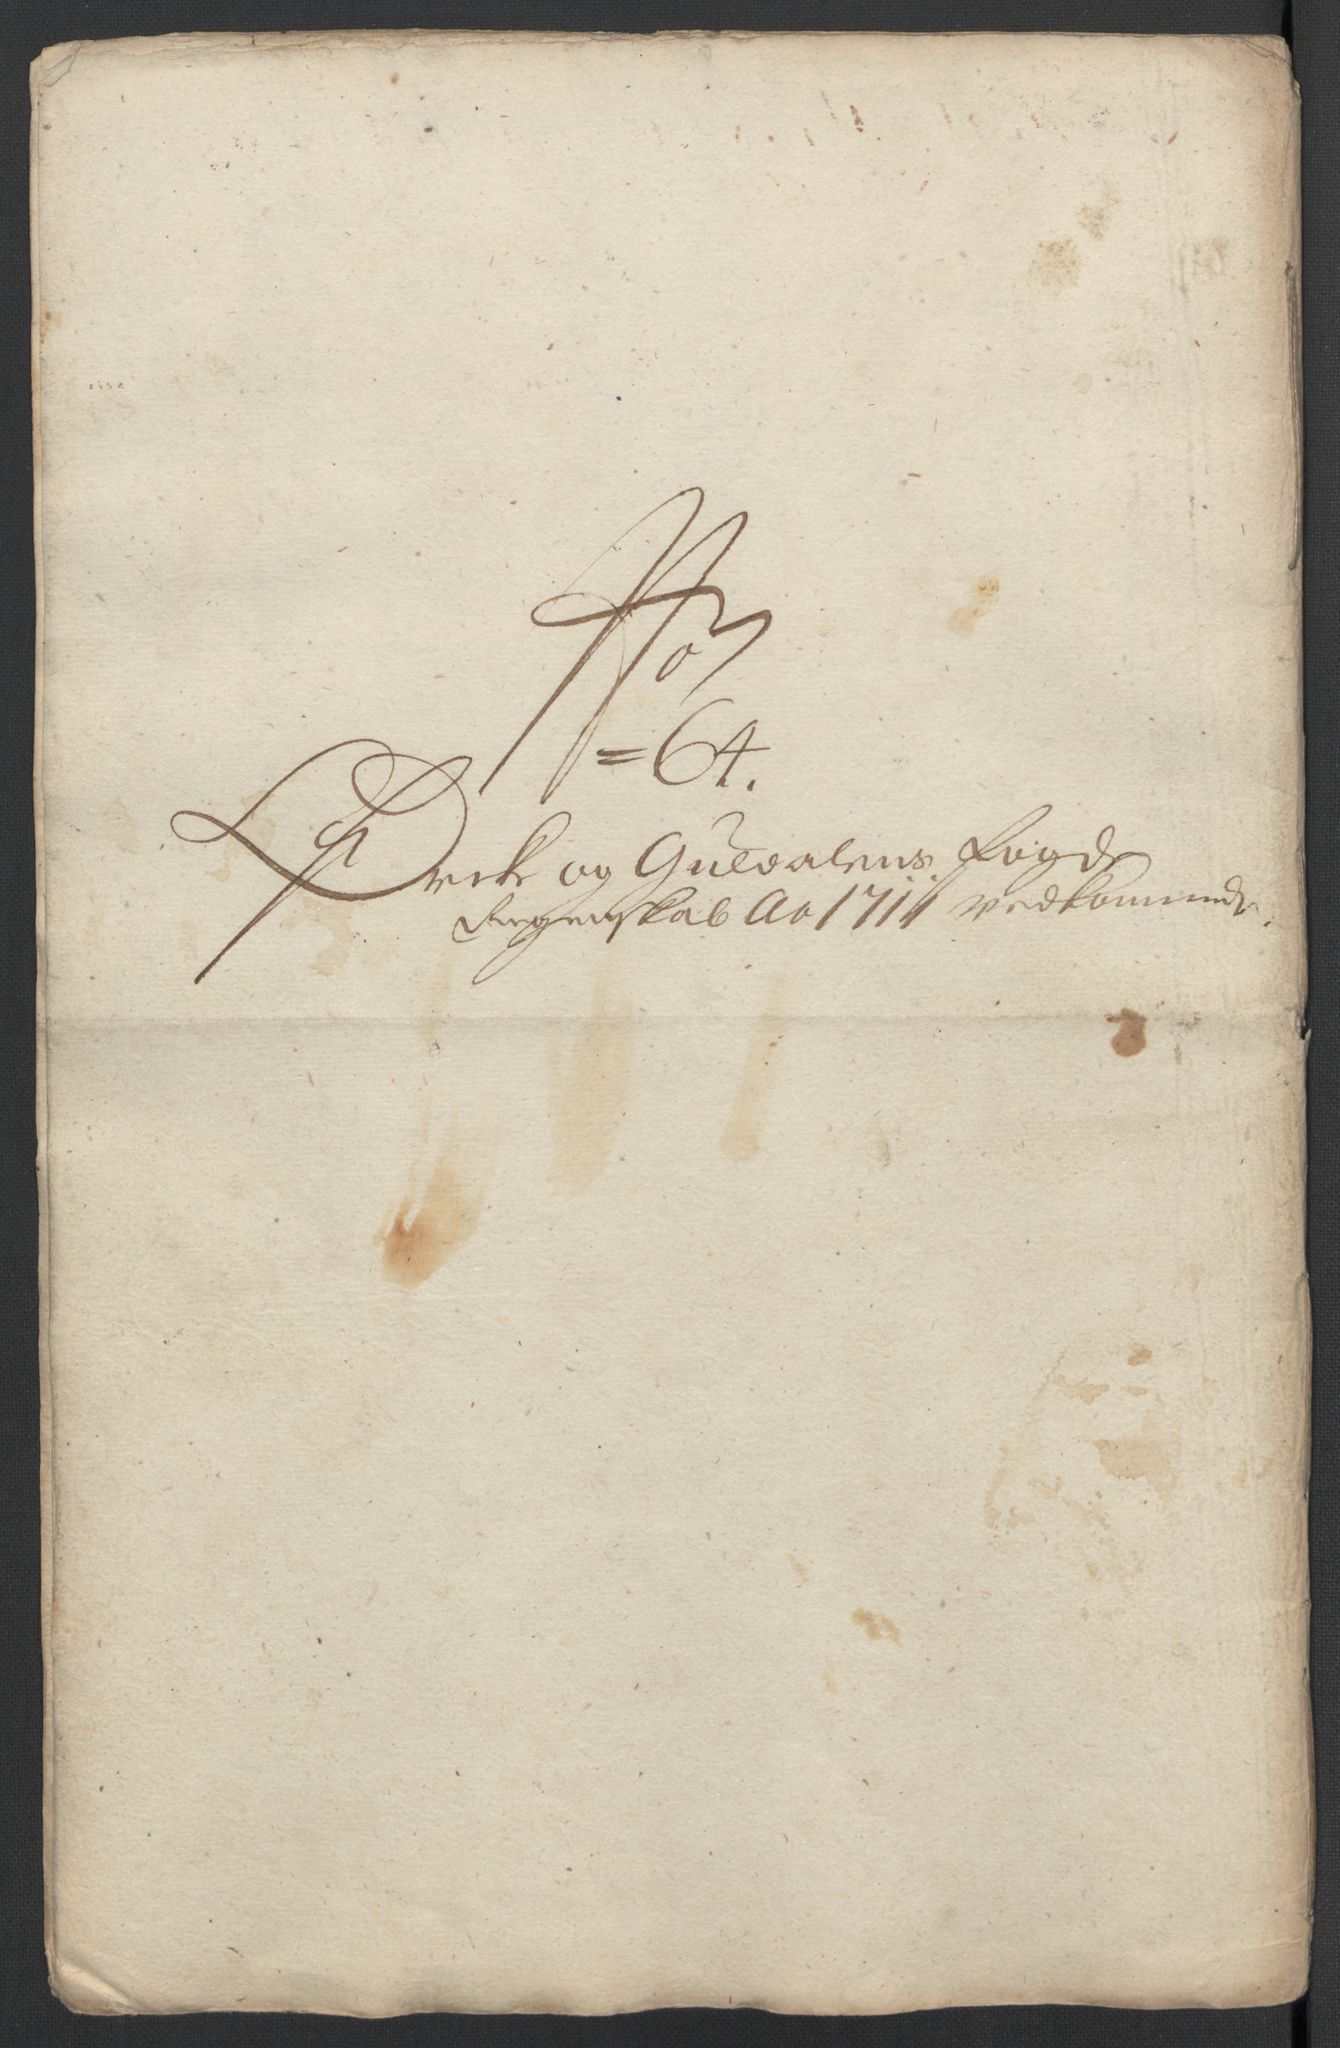 No
=64.
Orck og Guldalens fogd
Regenskab Ao 1711 vedkommende.